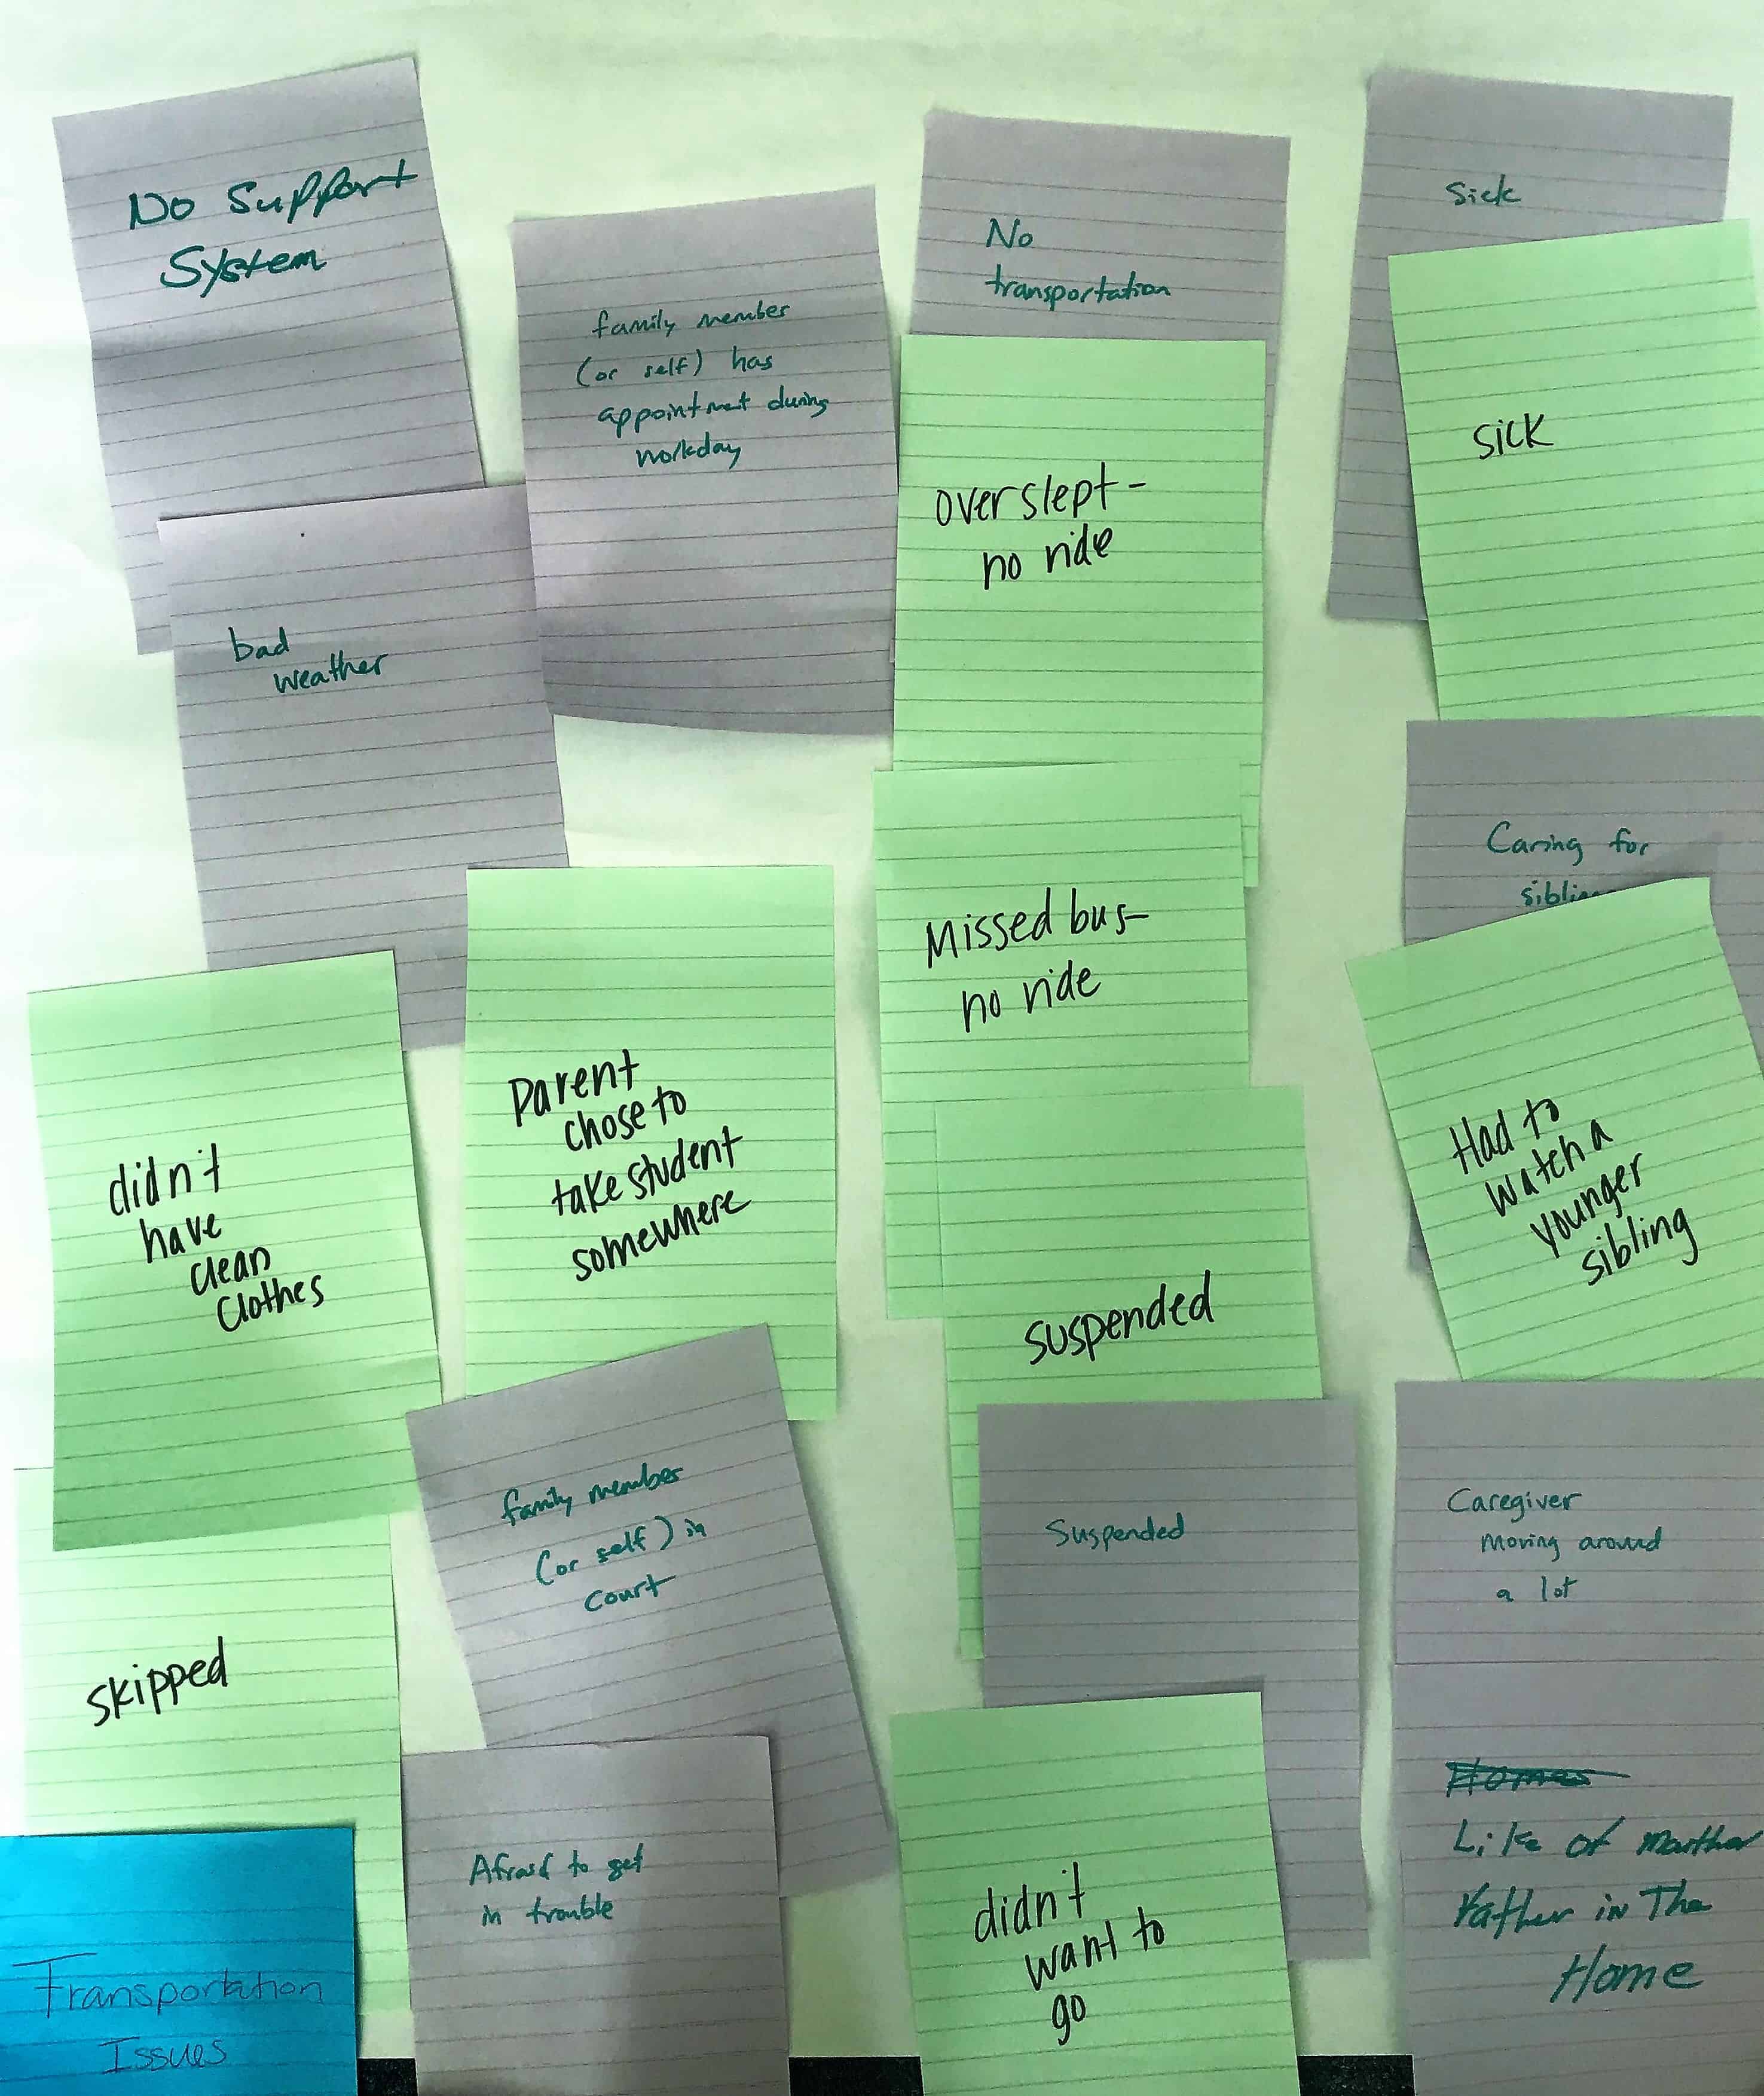 No Support
System
family member
(or self) has
appointment during
workday
No
transportation
Sick
overslept-
no ride
sick
bad
weather
Caring for
Missed bus-
no ride
didn't
have
clean
clothes
Parent
chose to
take student
somewhere
Had to
watch a
younger
sibling
suspended
family member
(or self) in
court
Suspended
Caregiver
moving around
a lot
skipped
Afraid to get
in trouble
didn't
want to
go
Like of
Father in The
Home
Transportation
Issues